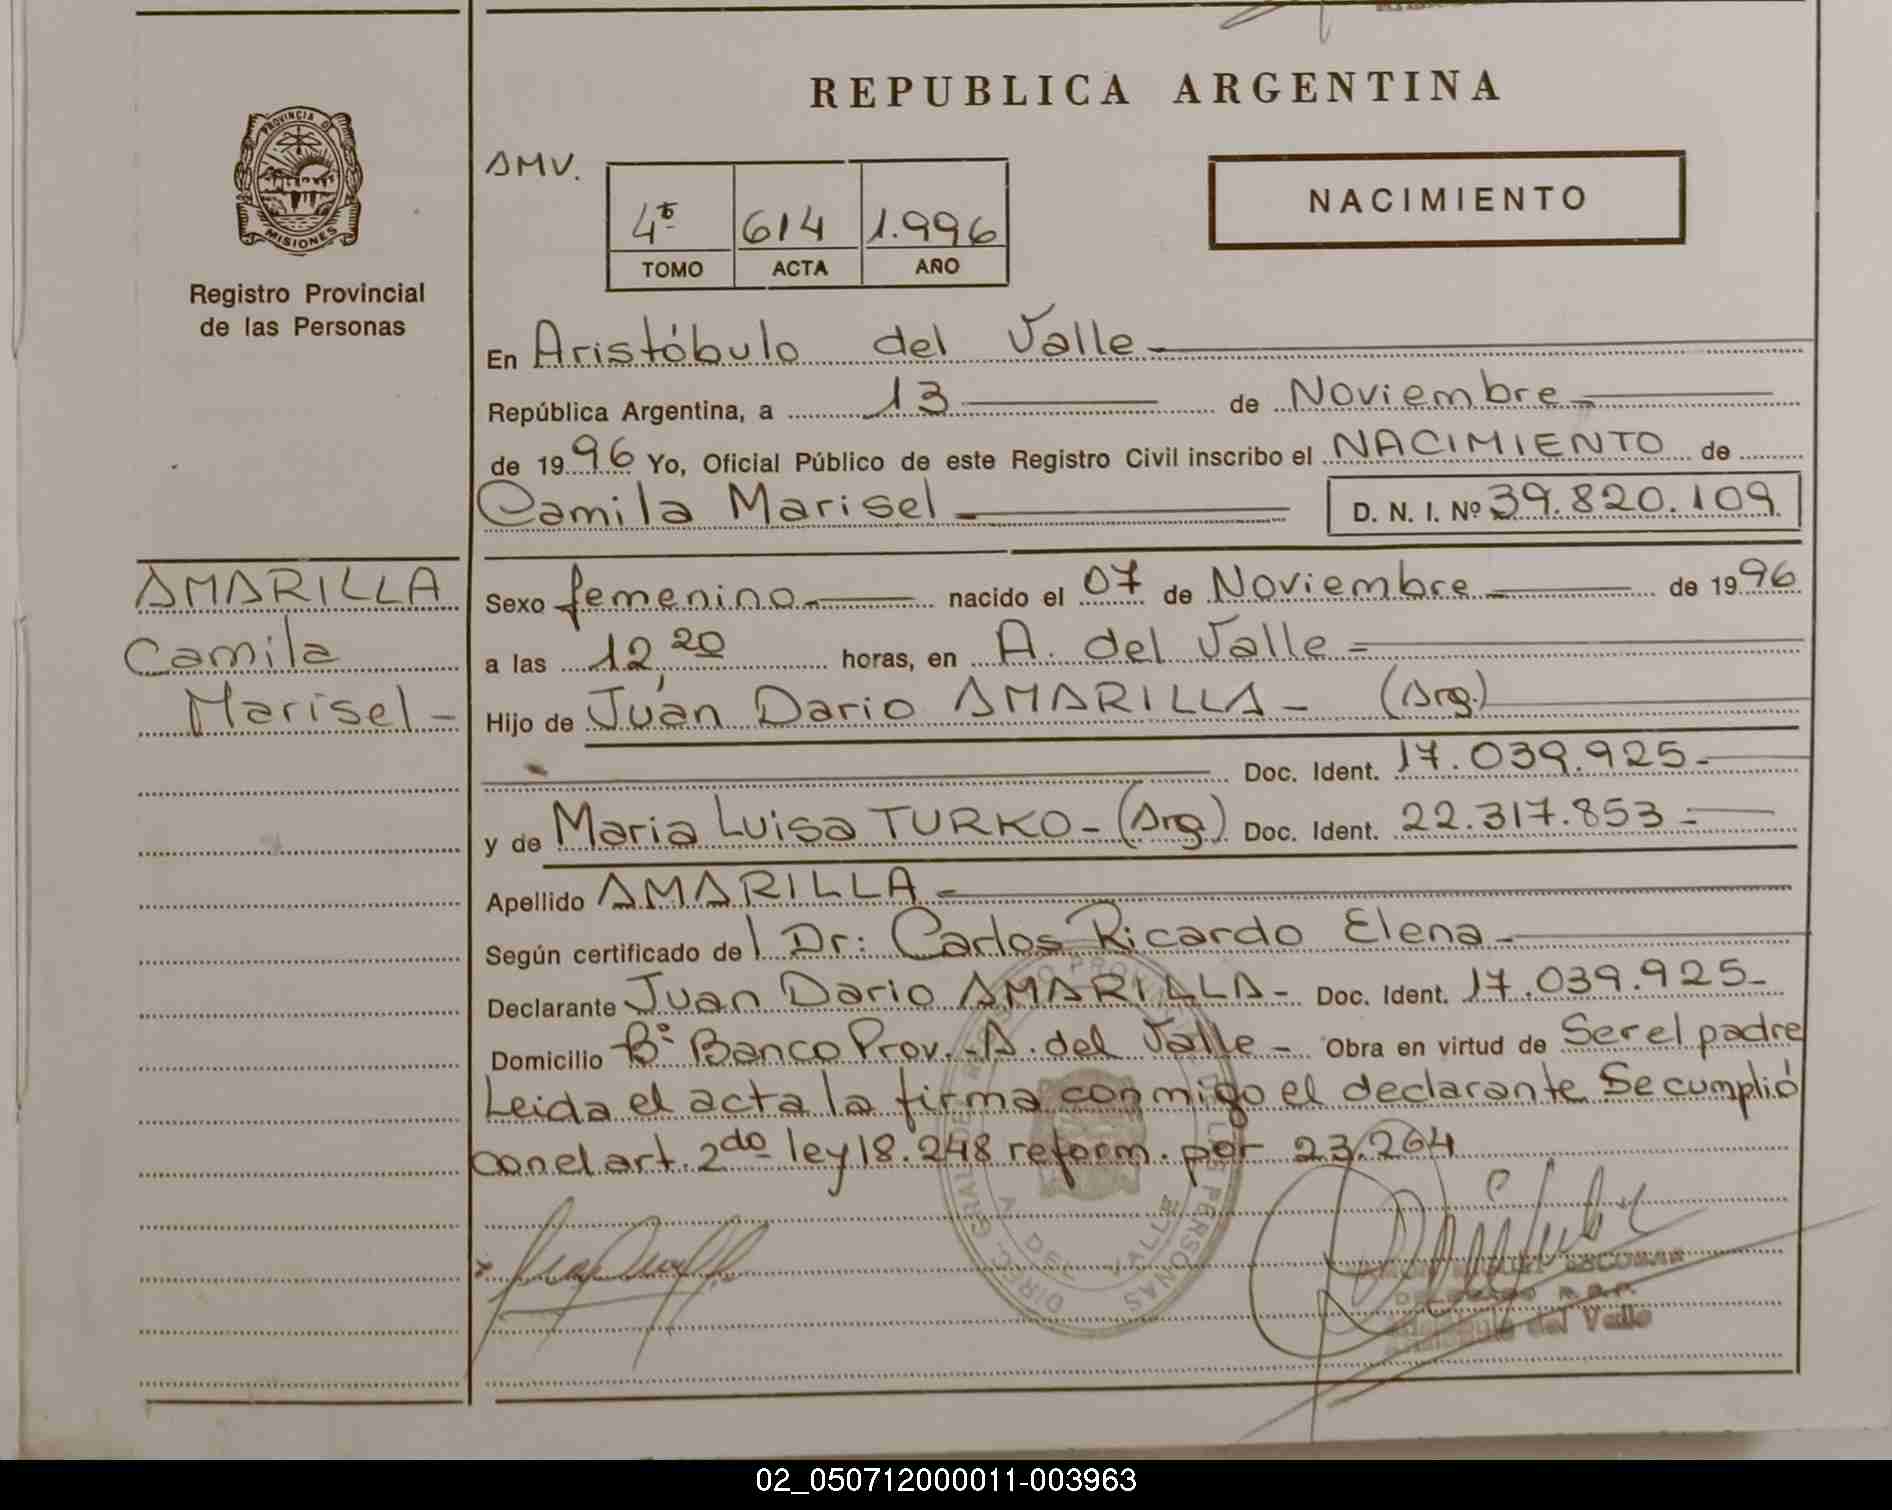 REPUBLICA ARGENTINA
PROVINCIA D
MISIONES
Registro Provincial
de las Personas
AMV.
NACIMIENTO
4to 614 1.996
TOMO ACTA AÑO
En Aristóbulo del Valle
República Argentina, a 13 de Noviembre
de 1996 Yo, Oficial Público de este Registro Civil inscribo el NACIMIENTO de
Camila Marisel D. N. I. Nº 39.820.109
AMARILLA
Camila
Marisel
Sexo femenino nacido el 07 de Noviembre de 1996
a las 12,20 horas, en A. del Valle
Hijo de Juan Dario AMARILLA - (Arg.)
Doc. Ident. 17.039.925
y de Maria Luisa TURKO - (Arg) Doc. Ident. 22.317.853
Apellido AMARILLA
Según certificado del Dr: Carlos Ricardo Elena
Declarante Juan Dario AMARILLA - Doc. Ident. 17.039.925
Domicilio Bº Banco Prov. - A. del Valle - Obra en virtud de Ser el padre
Leida el acta la firma conmigo el declarante Se cumplió
con el art. 2do ley 18.248 reform. por 23.264
DIREC. GRAL DEL REGISTRO PROVINCIAL DE LAS PERSONAS
A DEL VALLE
ESCOBAR
del Valle
02_050712000011-003963